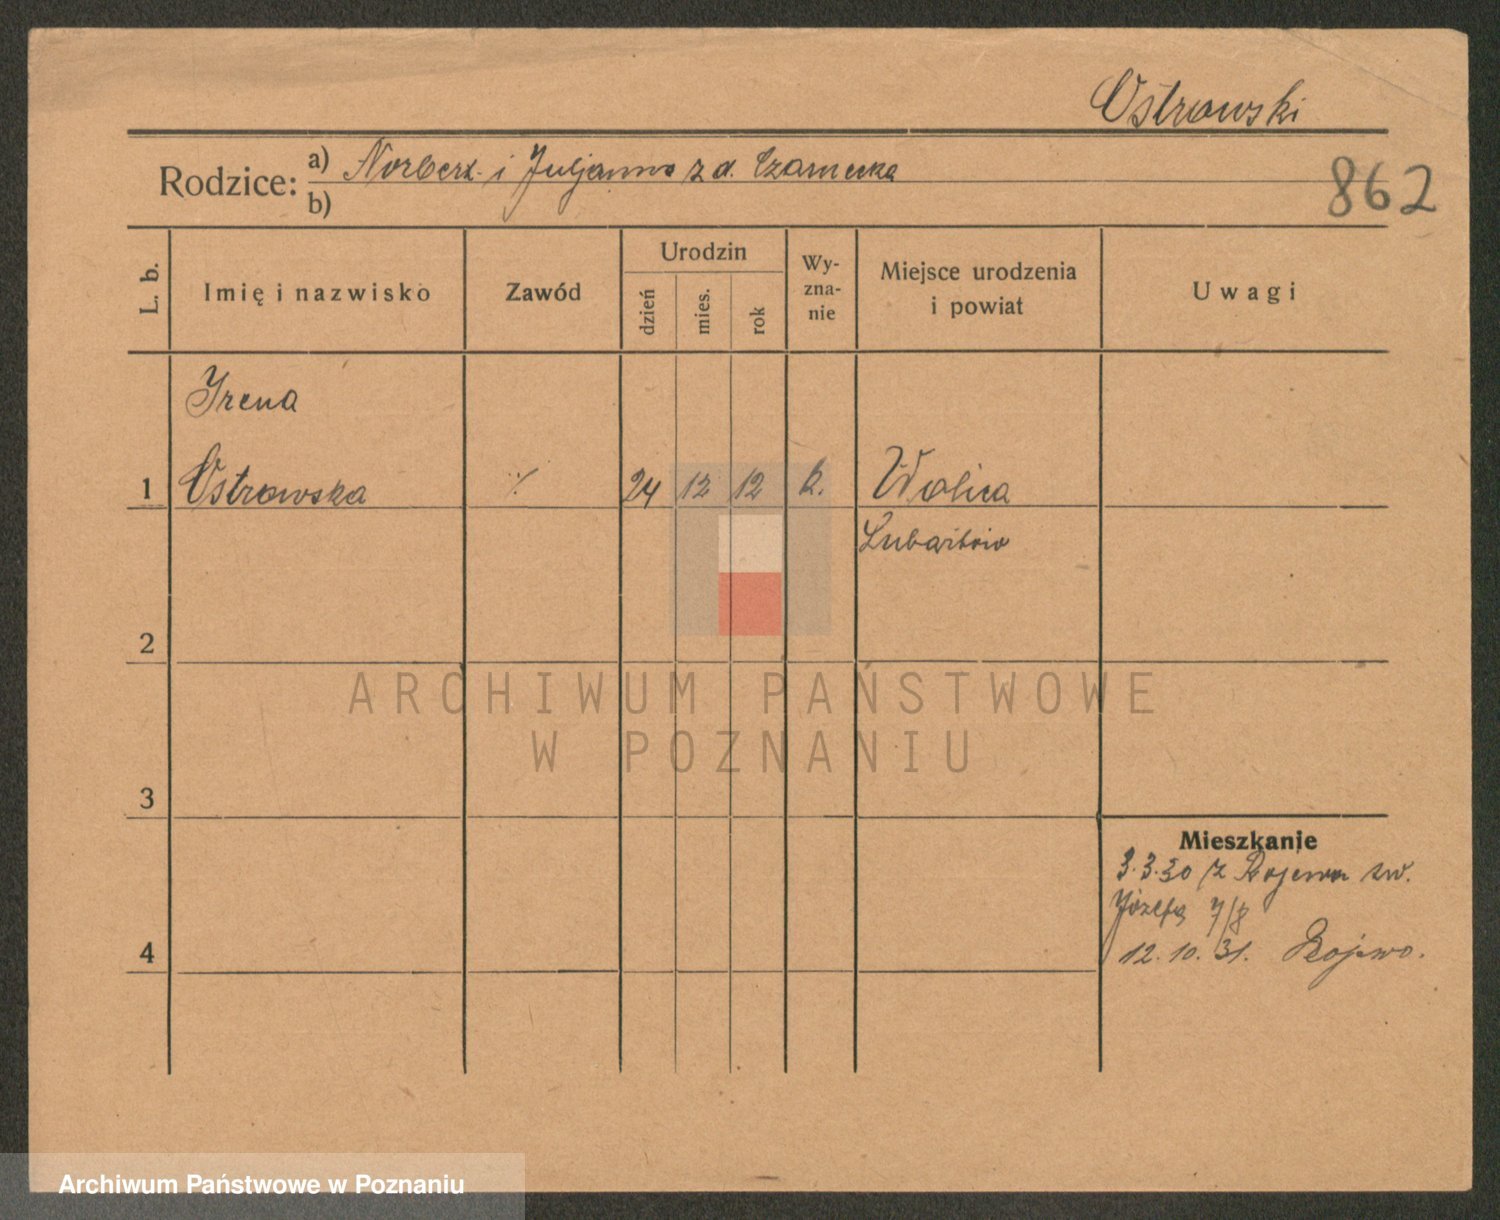 Ostrowski
Rodzice: a) Norbert i Juljanna z d. Czarnecka
b)
862
L. b.
Imię i nazwisko
Zawód
Urodzin
dzień
mies.
rok
Wy-
zna-
nie
Miejsce urodzenia
i powiat
Uwagi
Irena
1 Ostrowska ·/· 24 12 12 k. Wolica
Lubartów
2
ARCHIWUM PAŃSTWOWE
W POZNANIU
3
Mieszkanie
3.3.30 z Rojewa św.
Józefa 7/8
4
12.10.31. Rojewo.
Archiwum Państwowe w Poznaniu